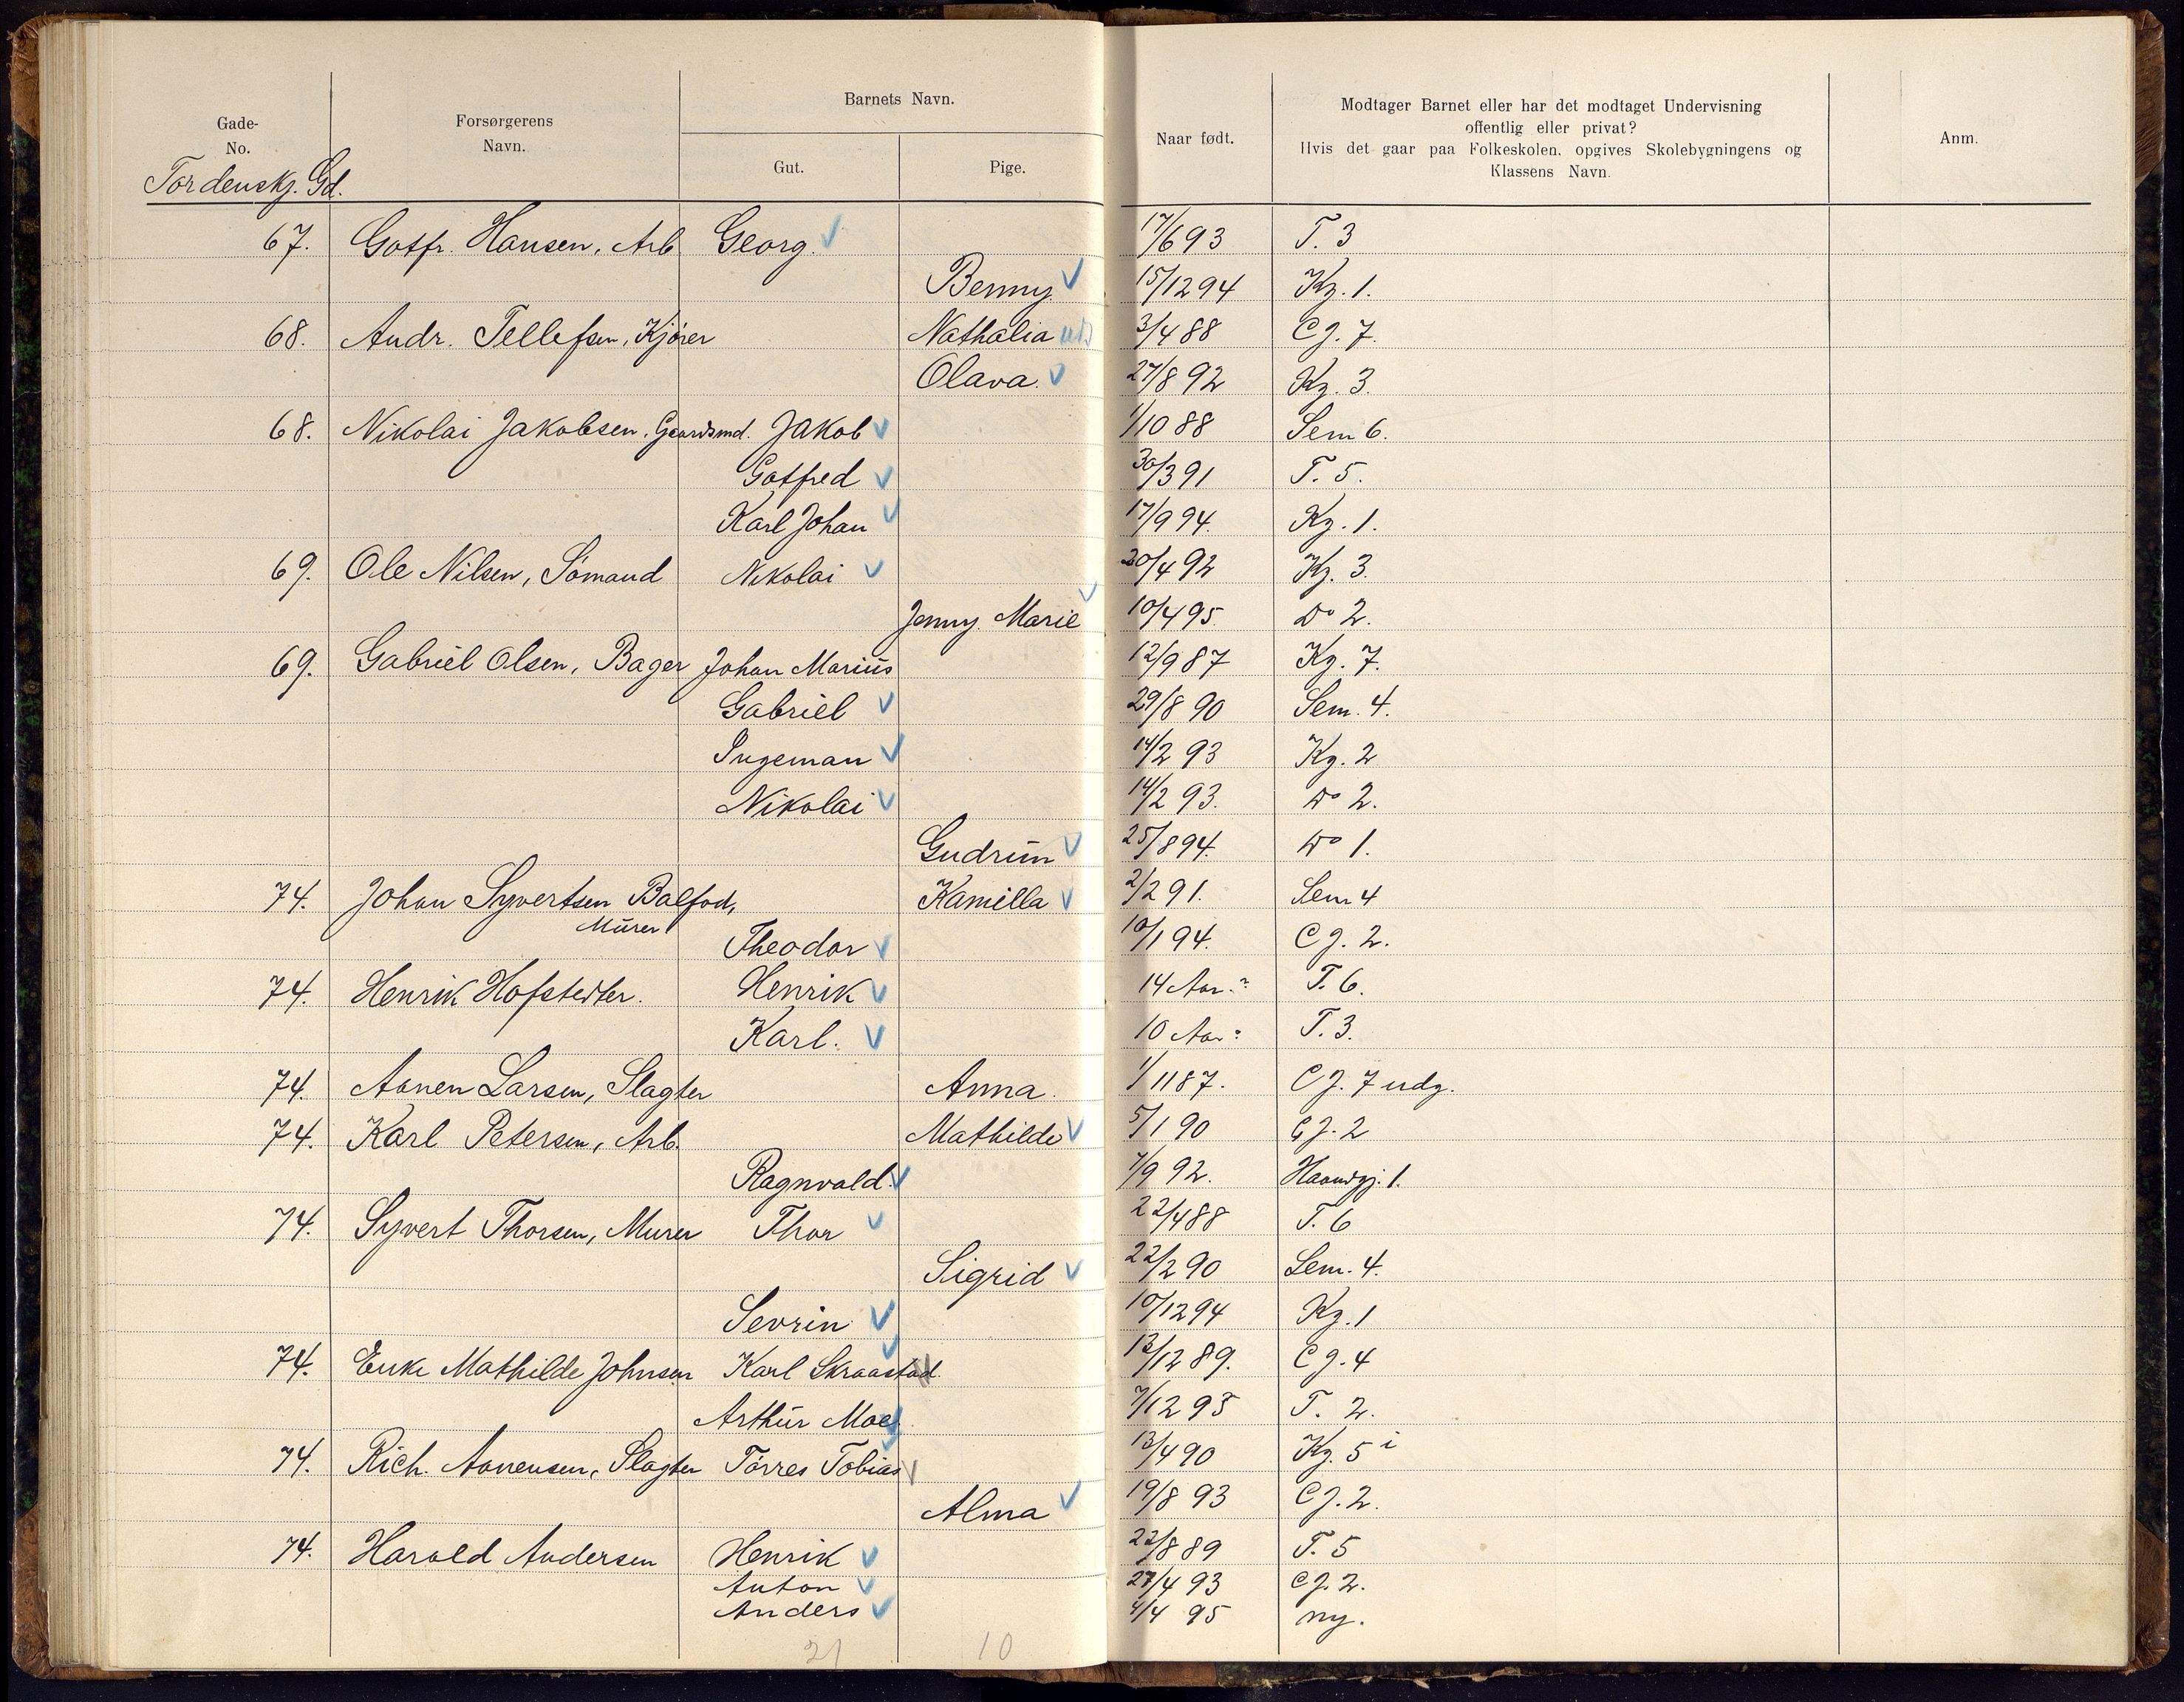 Gade-
No.
Tordenskj. Gd.
Forsørgerens
Navn.
Barnets Navn.
Gut.
Pige.
Naar født.
Modtager Barnet eller har det modtaget Undervisning
offentlig eller privat?
Hvis det gaar paa Folkeskolen, opgives Skolebygningens og
Klassens Navn.
Anm.
67. Gotfr. Hansen, Arb Georg. 17/6 93 T. 3
Benny 15/12 94 Kg. 1.
68. Andr. Tellefsen, Kjører Nathalia ud 3/4 88 C J. 7.
Olava. 27/8 92 Kg. 3.
68. Nikolai Jakobsen, Gaardsmd. Jakob 1/10 88 Sem 6.
Gotfred 30/3 91 T. 5.
Karl Johan 17/9 94. Kg. 1.
69. Ole Nilsen, Sømand Nikolai 20/4 92 Kg. 3.
Jenny Marie 10/4 95 Do 2.
69. Gabriel Olsen, Bager Johan Marius 12/9 87 Kg. 7.
Gabriel 29/8 90 Sem. 4.
Ingeman 14/2 93 Kg. 2
Nikolai 14/2 93. Do 2.
Gudrun 25/8 94. Do 1.
74. Johan Syvertsen Balfod, Kamilla 2/2 91. Sem 4
Murer
Theodor 10/1 94. C J. 2.
74. Henrik Hofstedter. Henrik 14 Aar? T. 6.
Karl. 10 Aar? T. 3.
74. Aanen Larsen, Slagter Anna. 1/11 87. C J. 7 udg.
74. Karl Petersen, Arb. Mathilde 5/1 90 C J. 2
Ragnvald. 7/9 92. Haandgj. 1.
74. Syvert Thorsen, Murer Thor 22/4 88 T. 6
Sigrid 22/2 90 Sem. 4.
Sevrin 10/12 94 Kg. 1
74. Enke Mathilde Johnsen Karl Skraastad. 13/12 89. C J. 4
Arthur Moe 7/12 93 T. 2.
74. Rich. Aanensen, Slagter Tørres Tobias 13/4 90 Kg. 5 i
Alma 19/8 93 C J. 2.
74. Harald Andersen Henrik 22/8 89 T. 5
Anton 27/4 93 C J. 2.
Anders 4/4 95 ny.
21 10